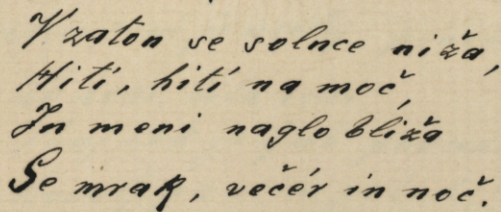 V zaton se solnce niža,
Hití, hití na moč,
In meni naglo bliža
Se mrak, večér in noč.